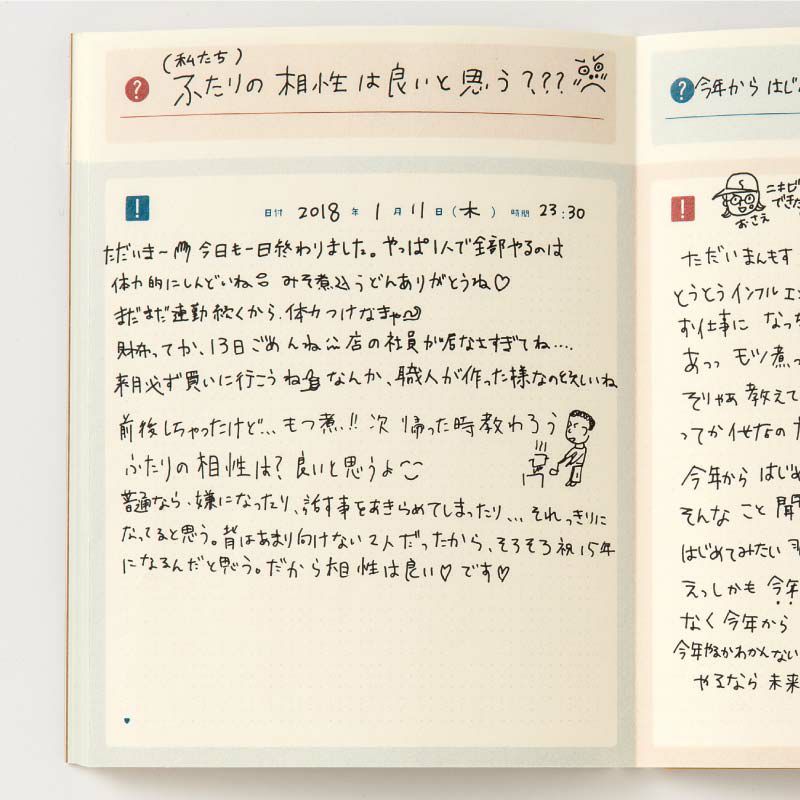 (私たち)
ふたりの 相性は良いと思う???
日付 2018 年 1 月 11 日 (木) 時間 23:30
ただいまー 今日も一日終わりました。やっぱ1人で全部やるのは
体力的にしんどいね みそ煮込うどんありがとうね♡
まだまだ連勤続くから、体力つけなきゃ
財布ってか、13日ごめんね 店の社員が居なさすぎてね....
来月必ず買いに行こうね なんか、職人が作った様なの欲しいね
前後しちゃったけど... もつ煮!! 次 帰った時教わろう
ふたりの相性は? 良いと思うよ
普通なら、嫌になったり、話す事をあきらめてしまったり、... それっきりに
なってると思う。背はあまり向けない2人だったから、そろそろ祝15年
になるんだと思う。だから相性は良い♡ です♡
今年から はじ
ニキビ
できた
おさえ
ただいまんもす
とうとうインフルエン
お仕事に なっ
あっっ モツ煮っ
そりゃあ 教えて
ってか イセなの
今年から はじめ
そんな こと 聞
はじめてみたい
えっしかも 今年
なく今年から
今年やるかわかんない
やるなら 未来